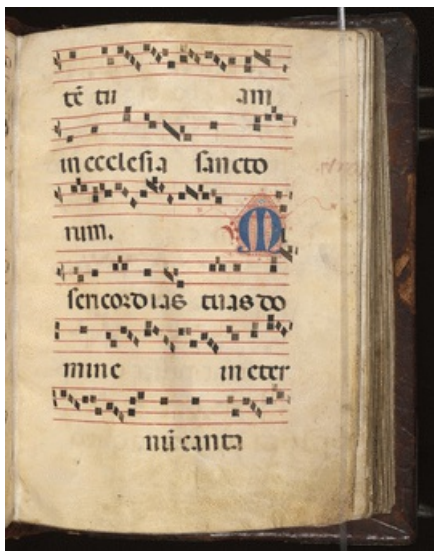 tē tu am
in ecclesia sancto
rum. Mi
sericordias tuas do
mine in eter
nū canta